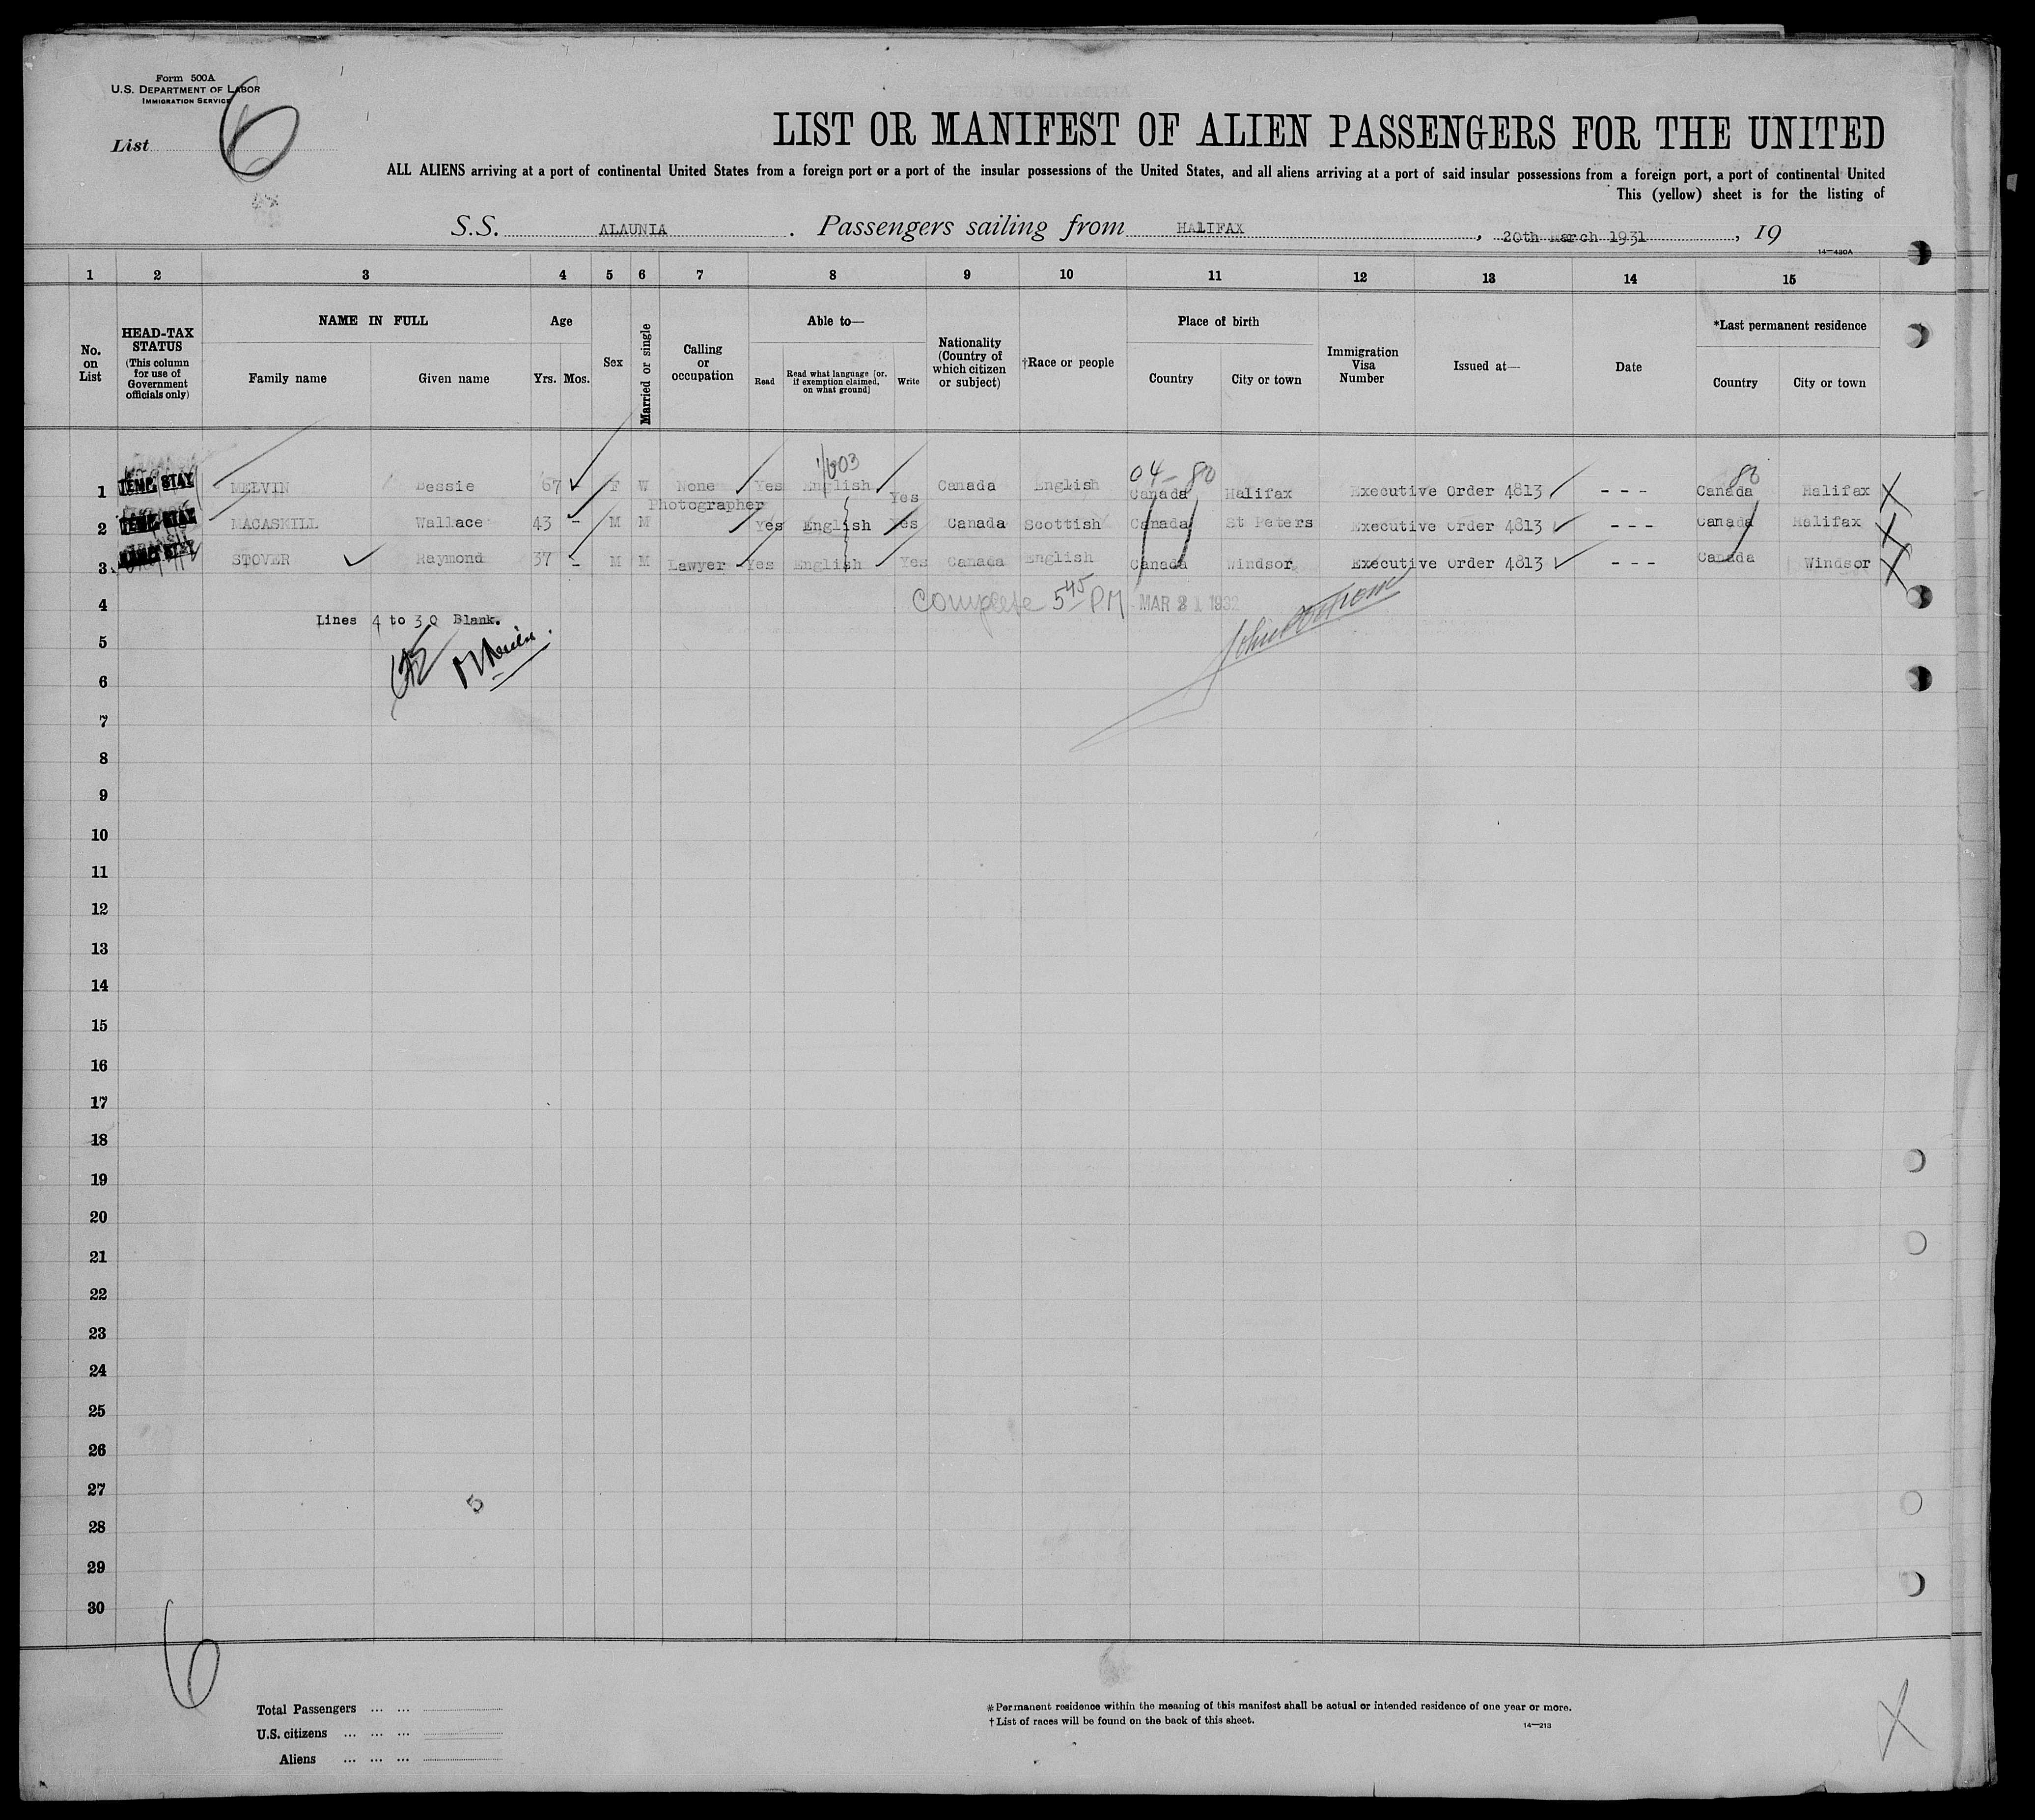 Form 500A
U.S. DEPARTMENT OF LABOR
IMMIGRATION SERVICE
List 6
LIST OR MANIFEST OF ALIEN PASSENGERS FOR THE UNITED
ALL ALIENS arriving at a port of continental United States from a foreign port or a port of the insular possessions of the United States, and all aliens arriving at a port of said insular possessions from a foreign port, a port of continental United
This (yellow) sheet is for the listing of
S.S. ALAUNIA . Passengers sailing from HALIFAX , 20th March 1931 , 19
14—480A
1 2 3 4 5 6 7 8 9 10 11 12 13 14 15
No. on List
HEAD-TAX STATUS (This column for use of Government officials only)
NAME IN FULL
Family name Given name
Age
Yrs. Mos.
Sex
Married or single
Calling or occupation
Able to—
Read
Read what language [or, if exemption claimed, on what ground]
Write
Nationality (Country of which citizen or subject)
†Race or people
Place of birth
Country City or town
Immigration Visa Number
Issued at—
Date
*Last permanent residence
Country City or town
1 TEMP. STAY MELVIN Bessie 67 F W None Yes English Yes Canada English 04-80 Canada Halifax Executive Order 4813 - - - 80 Canada Halifax X
2 TEMP. STAY MACASKILL Wallace 43 - M M Photographer Yes English Yes Canada Scottish Canada St Peters Executive Order 4813 - - - Canada Halifax X
3 STOVER Raymond 37 - M M Lawyer Yes English Yes Canada English Canada Windsor Executive Order 4813 - - - Canada Windsor X
4 Complete 5 45 PM MAR 21 1932
Lines 4 to 30 Blank.
5
6
7
8
9
10
11
12
13
14
15
16
17
18
19
20
21
22
23
24
25
26
27
28
29
30
6
Total Passengers ... ...
U.S. citizens ... ... ...
Aliens ... ... ...
*Permanent residence within the meaning of this manifest shall be actual or intended residence of one year or more.
†List of races will be found on the back of this sheet.
14—213
X